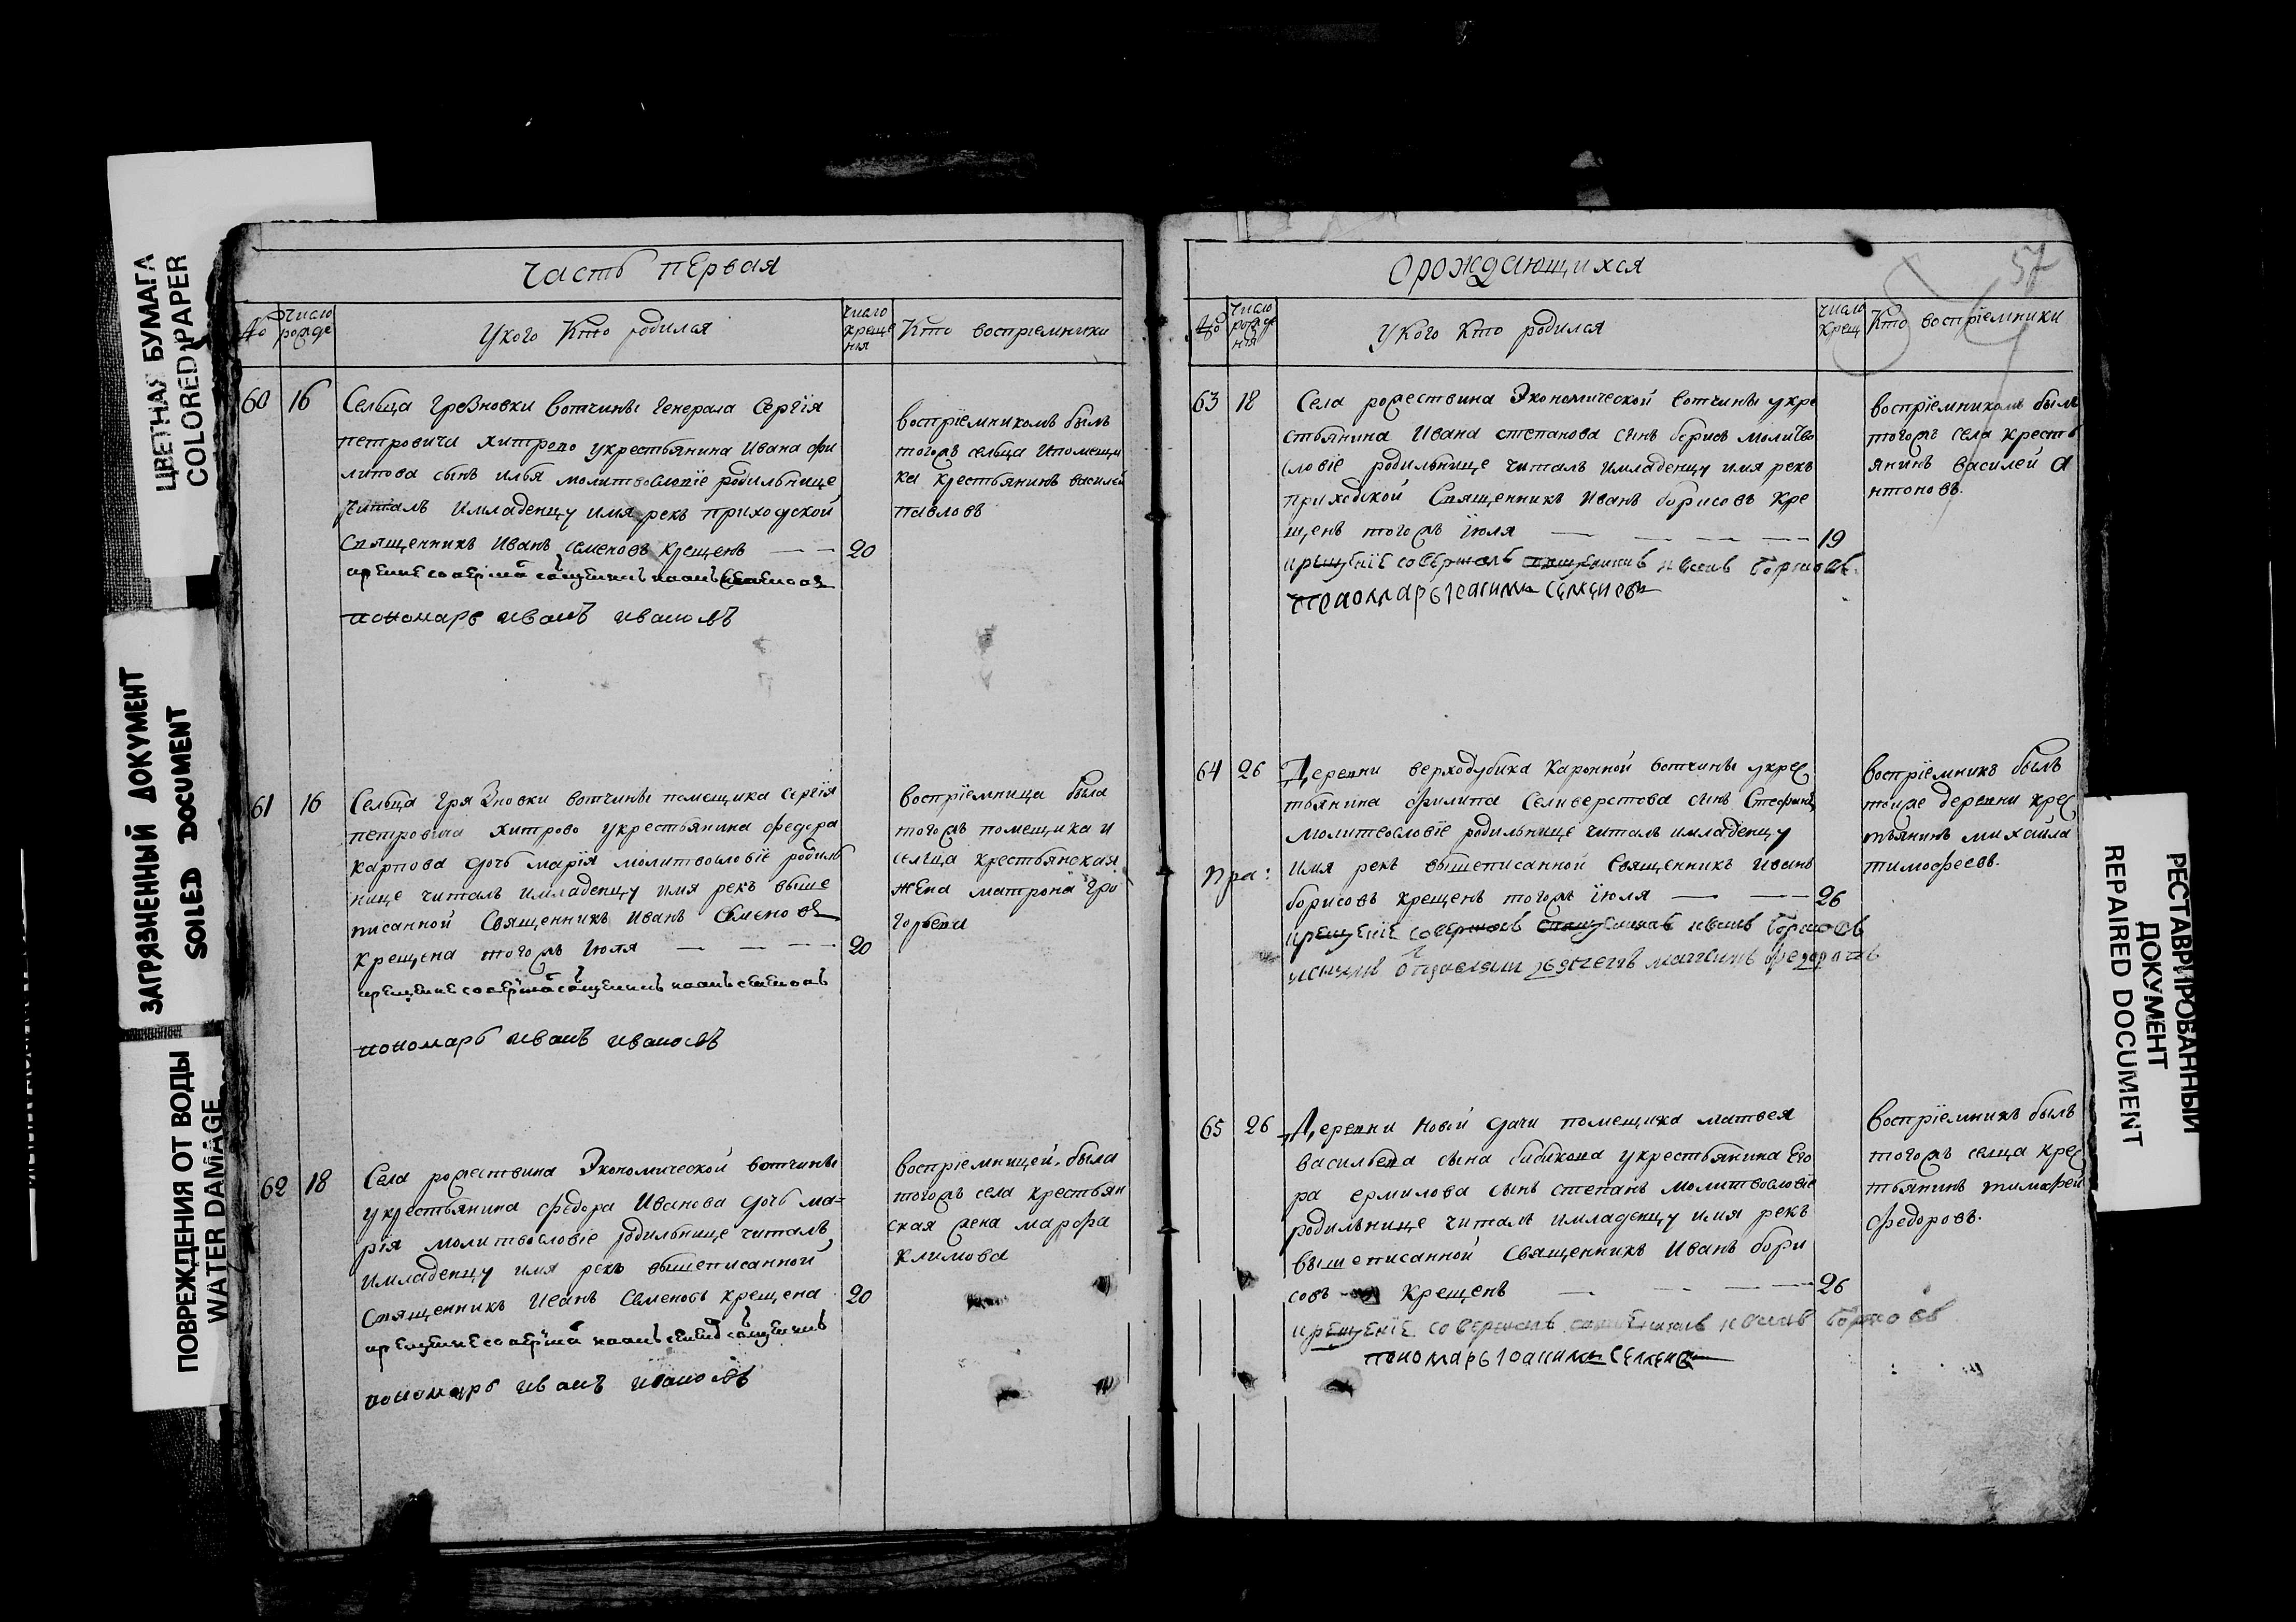 ЦВЕТНАЯ БУМАГА
COLORED PAPER
ЗАГРЯЗНЕННЫЙ ДОКУМЕНТ
SOILED DOCUMENT
ПОВРЕЖДЕНИЯ ОТ ВОДЫ
WATER DAMAGE
часть первая
№
число рожде
У кого Кто родился
число креще нія
Кто воспріемники
60 16
Сельца Грезновки вотчины генерала Сергія
петровича хитрово укрестьянина Ивана фи
липова сынъ илья молитвословіе родильнице
читалъ имладенцу имя рекъ приходской
Священникъ Иванъ семеновъ крещенъ — — 20
пономарь иванъ ивановъ
воспріемникомъ былъ
тогожъ сельца ипомещи
ка крестьянинъ василей
павловъ
61 16
Сельца Грязновки вотчины помещика сергія
петровича хитрово укрестьянина федора
карпова дочь марія молитвословіе родиль
нице читалъ имладенцу имя рекъ выше
писанной Священникъ Иванъ Семеновъ
крещена тогожъ Іюля — — — 20
пономарь иванъ ивановъ
воспріемница была
тогожъ помещика и
сельца крестьянская
жена матрона гри
горьева
62 18
Села рожествина Экономической вотчины
укрестьянина федора Иванова дочь ма=
рія молитвословіе родильнице читалъ
имладенцу имя рекъ вышеписанной
Священникъ Иванъ Семеновъ крещена 20
пономарь иванъ ивановъ
воспріемницей была
тогожъ села крестьян
ская жена марфа
климова
орождающихся
57
№
число рожде нія
У кого кто родился
число крещ
Кто воспріемники
63 18
Села рожествина Экономической вотчины укре
стьянина Ивана степанова сынъ борисъ молитво
словіе родильнице читалъ имладенцу имя рекъ
приходской Священникъ Иванъ борисовъ кре
щенъ тогожъ іюля — — — — 19
крещеніе совершалъ священникъ иванъ борисовъ
воспріемникомъ былъ
тогожъ села кресть
янинъ василей а
нтоновъ.
64 26
Деревни верходубика Каронной вотчины укрес
тьянина филипа Селиверстова сынъ Стефанъ
молитвословіе родильнице читалъ имладенцу
имя рекъ вышеписанной Священникъ Иванъ
борисовъ крещенъ тогожъ іюля — — 26
крещеніе совершалъ священникъ иванъ борисовъ
воспріемникъ былъ
тоиже деревни крес
тьянинъ михайла
тимофеевъ.
65 26
Деревни Новой дачи помещика матвея
васильева сына бибикова укрестьянина Его
ра ермилова сынъ степанъ молитвословіе
родильнице читалъ имладенцу имя рекъ
вышеписанной Священникъ Иванъ бори
совъ крещенъ — — — 26
крещеніе совершалъ священникъ иванъ борисовъ
воспріемникъ былъ
тогожъ селца крес
тьянинъ тимофей
федоровъ.
РЕСТАВРИРОВАННЫЙ
ДОКУМЕНТ
REPAIRED DOCUMENT